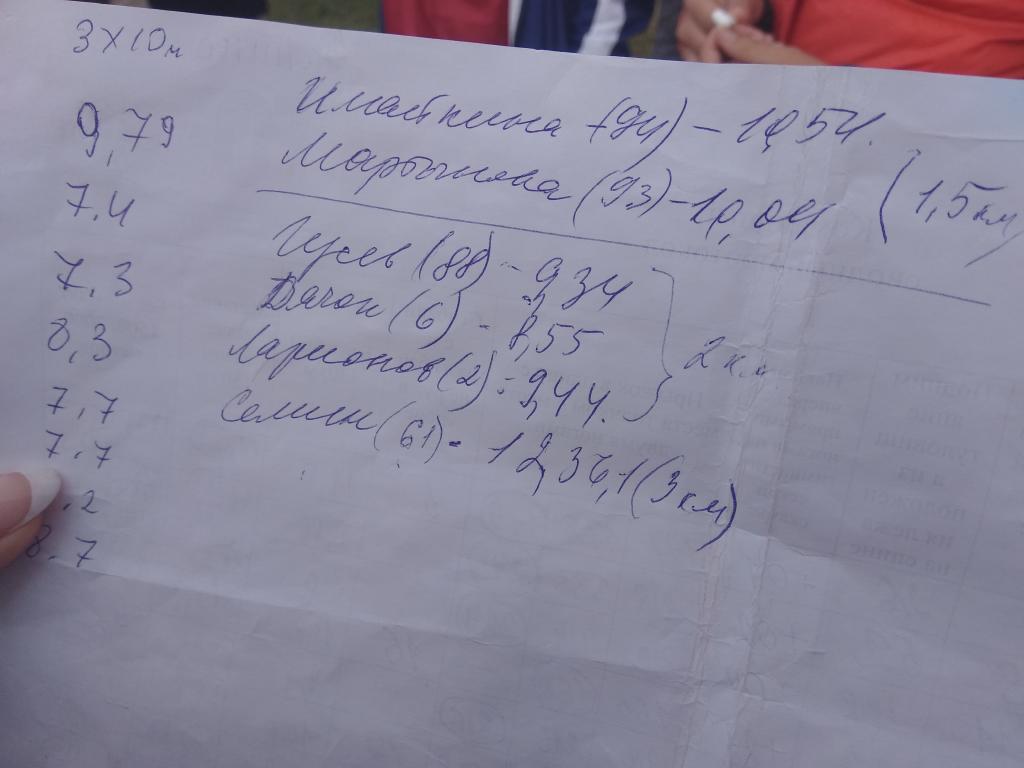 3X10м
9,79
7.4
7.3
8,3
7,7
7.7
.2
8.7
(94) - 10,54.
Мартынова (93) - 10,04 (1,5км)
Гусев (88) - 9,34
Дячок (6) - 8,55
Ларионов (2) - 9,44. 2км
Семин (61) - 12,36,1 (3км)